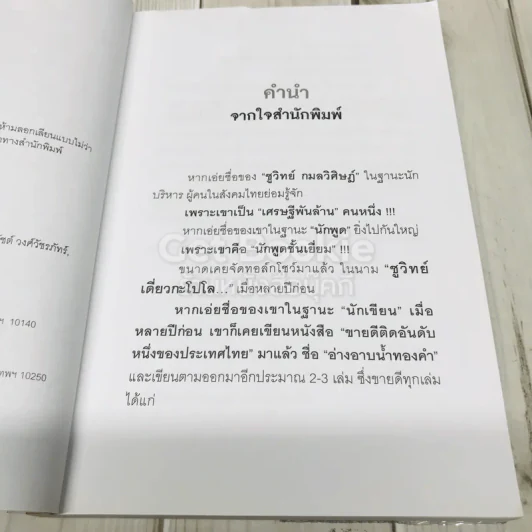 ห้ามลอกเลียนแบบไม่ว่า
ทางสำนักพิมพ์
วงศ์วัชรภัทธ์,
ฯ 10140
เทพฯ 10250
คำนำ
จากใจสำนักพิมพ์
หากเอ่ยชื่อของ "ชูวิทย์ กมลวิศิษฎ์" ในฐานะนัก
บริหาร ผู้คนในสังคมไทยย่อมรู้จัก
เพราะเขาเป็น "เศรษฐีพันล้าน" คนหนึ่ง !!!
หากเอ่ยชื่อของเขาในฐานะ "นักพูด" ยิ่งไปกันใหญ่
เพราะเขาคือ "นักพูดชั้นเยี่ยม" !!!
ขนาดเคยจัดทอล์กโชว์มาแล้ว ในนาม "ชูวิทย์
เดี่ยวกะโปโล..." เมื่อหลายปีก่อน
หากเอ่ยชื่อของเขาในฐานะ "นักเขียน" เมื่อ
หลายปีก่อน เขาก็เคยเขียนหนังสือ "ขายดีติดอันดับ
หนึ่งของประเทศไทย" มาแล้ว ชื่อ "อ่างอาบน้ำทองคำ"
และเขียนตามออกมาอีกประมาณ 2-3 เล่ม ซึ่งขายดีทุกเล่ม
ได้แก่